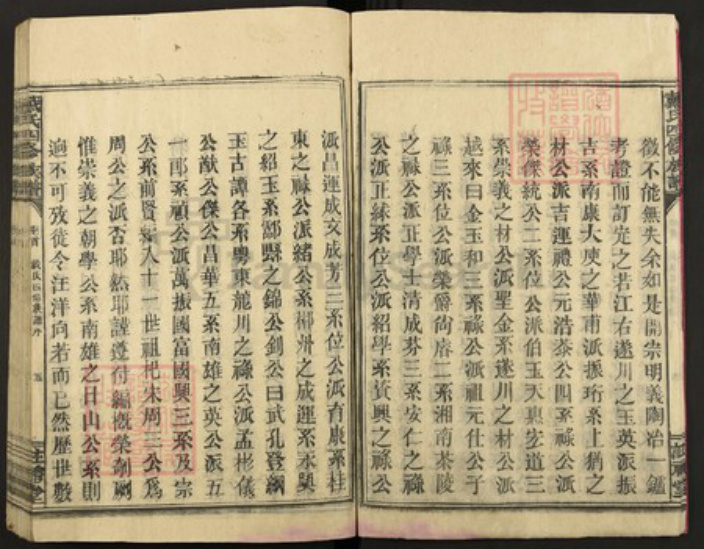 徵不能無失余如是開崇明義陶冶一鑪
考證而訂定之若江右遂川之玉英派振
吉系南康大庾之華甫派振珩系上猶之
材公派吉運禮公元浩泰公四系祿公派
榮傑統公二系位公派伯玉天惠玄道三
系崇義之材公派聖金系遂川之材公派
越來曰金玉和三系祿公派祖元仕公子
祿三系位公派榮爵尚膺二系湘南茶陵
之祿公派正學士清成芬三系安仁之祿
公派正績系位公派紹學系資興之祿公
派昌連成文成芳三系位公派有康系桂
東之祿公派緒公系郴州之成運系永興
之紹玉系酃縣之錦公釗公曰武孔登綱
玉古譚各系粵東龍川之祿公派孟彬儀
公猷公傑公昌華五系南雄之英公派五
一郎系顧公派萬振國富國興三系及宗
公系前賢第入十一世祖杞宋周三公為
周公之派否耶然耶謹遵付編概榮剞劂
惟崇義之朝學公系南雄之日山公系則
迥不可攷徒令汪洋向若而已然歷世數
戴氏四修族譜
卷首
五
注禮堂